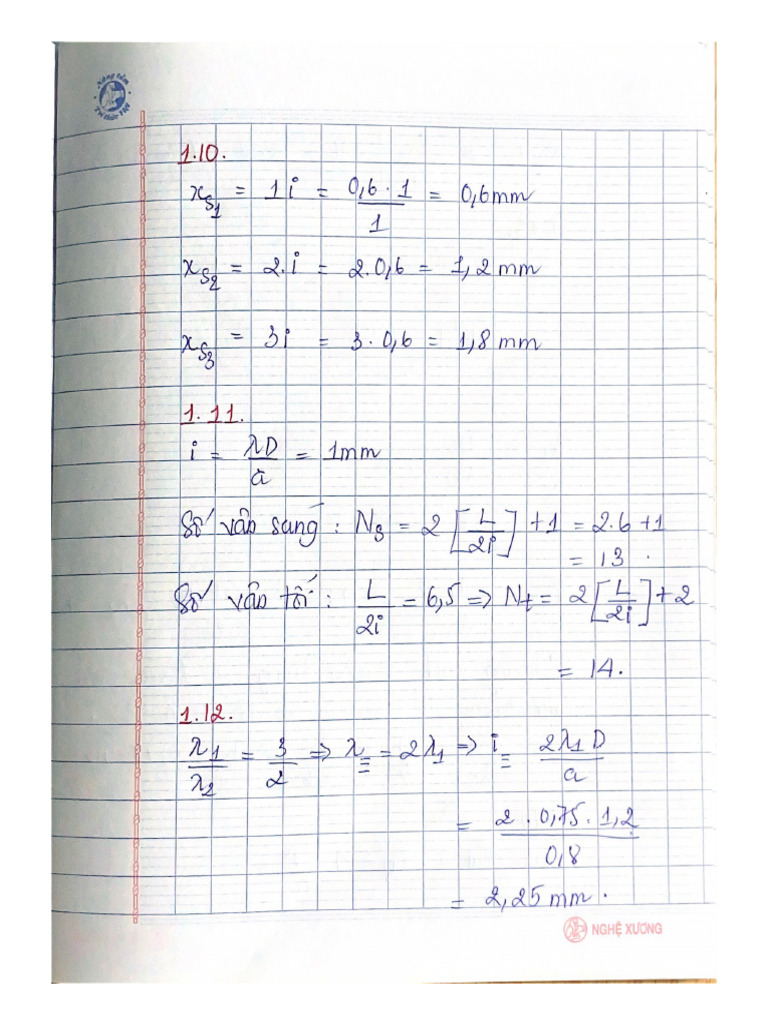 Nâng tầm
Tri thức Việt
1.10.
x_{S_1} = 1i = \frac{0,6 . 1}{1} = 0,6mm
x_{S_2} = 2.i = 2.0,6 = 1,2 mm
x_{S_3} = 3i = 3 . 0,6 = 1,8 mm
1. 11.
i = \frac{λD}{a} = 1mm
Số vân sáng : N_s = 2 [\frac{L}{2i}] + 1 = 2.6+1
= 13 .
Số vân tối : \frac{L}{2i} = 6,5 => N_t = 2 [\frac{L}{2i}] + 2
= 14.
1.12.
\frac{λ_1}{λ_2} = \frac{3}{2} => λ_≡ = 2λ_1 => i_≡ \frac{2λ_1 D}{a}
= \frac{2 . 0,75 . 1,2}{0,8}
= 2,25 mm .
NGHỆ XƯƠNG